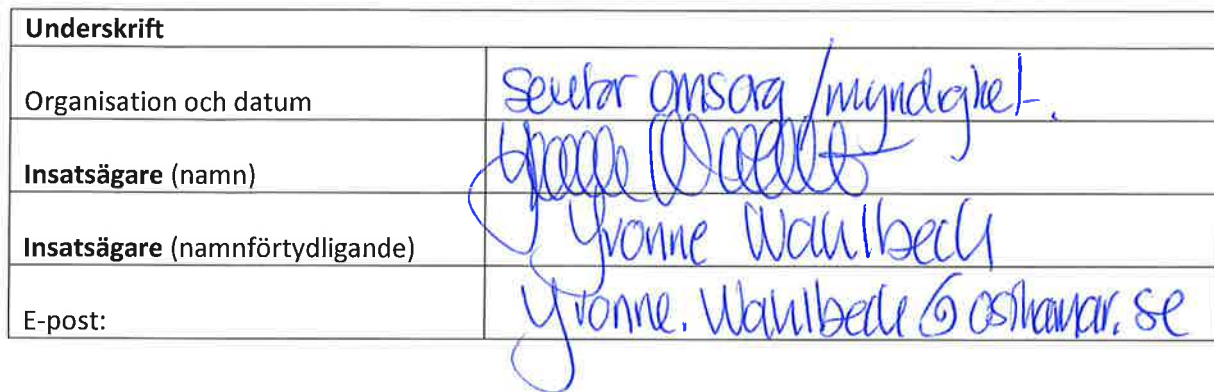 Underskrift
Organisation och datum Sektor omsorg/myndighet.
Insatsägare (namn)
Insatsägare (namnförtydligande) Yvonne Wahlbeck
E-post: Yvonne.Wahlbeck@osthammar.se